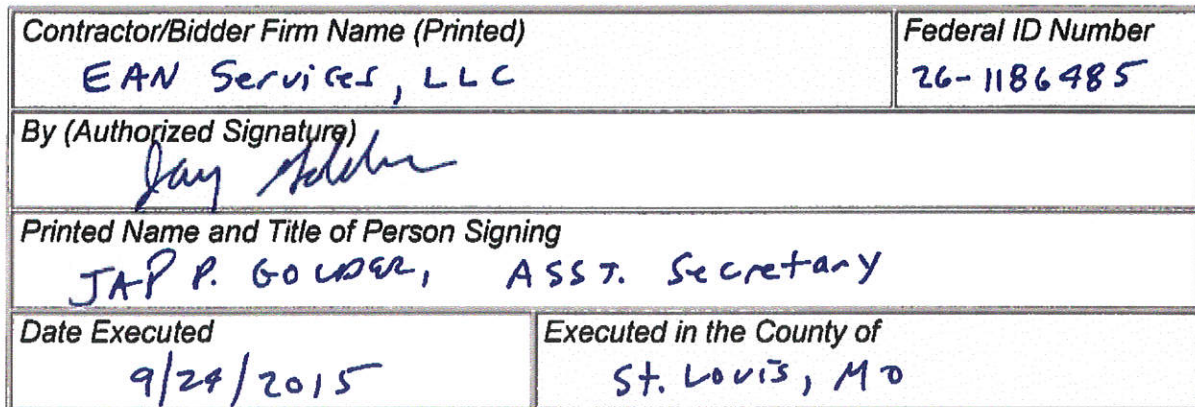 Contractor/Bidder Firm Name (Printed) Federal ID Number
EAN Services, LLC 26-1186485
By (Authorized Signature)
Jay Golder
Printed Name and Title of Person Signing
JAY P. GOLDER, ASST. Secretary
Date Executed Executed in the County of
9/24/2015 St. Louis, MO